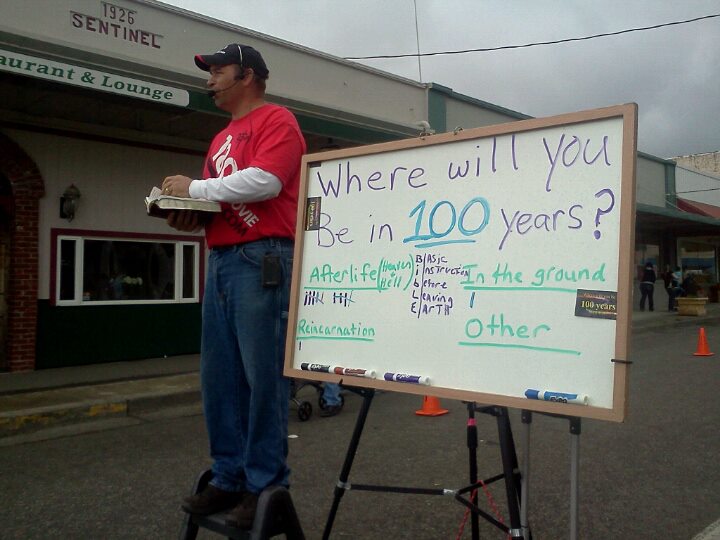 1926
SENTINEL
aurant & Lounge
MOVIE
Where will you
Be in 100 years?
Afterlife (Heaven + Hell)
Basic
instruction
before
Leaving
EArtH
In the ground
100 years
Reincarnation
Other
EXPO